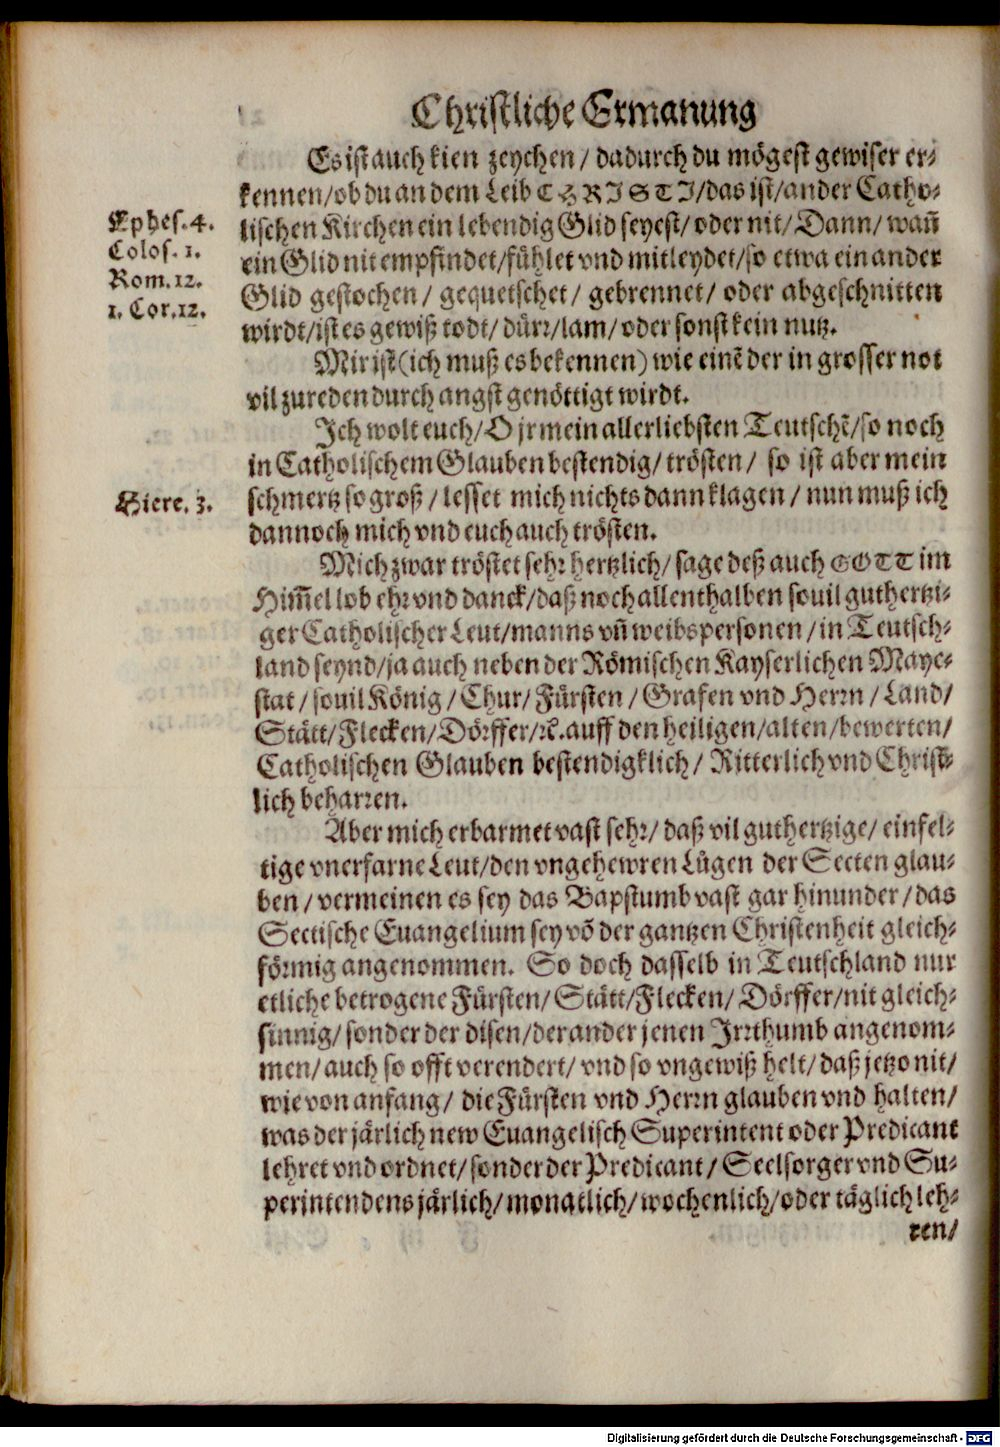 Christliche Ermanung
Es ist auch kien zeychen / dadurch du mögest gewiser er-
kennen/ob du an dem Leib CHRISTI/das ist/an der Catho-
lischen Kirchen ein lebendig Glid seyest/oder nit/Dann/wañ
ein Glid nit empfindet/fühlet vnd mitleydet/so etwa ein ander
Glid gestochen/ gequetschet/ gebrennet/ oder abgeschnitten
wirdt/ist es gewiß todt/dürr/lam/oder sonst kein nutz.
Ephes. 4.
Colos. 1.
Rom. 12.
1. Cor. 12.
Mir ist (ich muß es bekennen) wie einẽ der in grosser not
vil zureden durch angst genöttigt wirdt.
Ich wolt euch/O jr mein allerliebsten Teutschẽ/so noch
in Catholischem Glauben bestendig/trösten/ so ist aber mein
schmertz so groß / lesset mich nichts dann klagen / nun muß ich
dannoch mich vnd euch auch trösten.
Hiere. 3.
Mich zwar tröstet sehr hertzlich/sage deß auch GOTT im
Him̃el lob ehr vnd danck/daß noch allenthalben souil guthertzi-
ger Catholischer Leut/manns vñ weibs personen /in Teutsch-
land seynd/ja auch neben der Römischen Kayserlichen Maye-
stat / souil König / Chur / Fürsten / Grafen vnd Herrn / Land/
Stätt/Flecken/Dörffer/ꝛc. auff den heiligen/alten/bewerten/
Catholischen Glauben bestendigklich/ Ritterlich vnd Christ-
lich beharren.
Aber mich erbarmet vast sehr/ daß vil guthertzige/ einfel-
tige vnerfarne Leut/den vngehewren Lügen der Secten glau-
ben / vermeinen es sey das Bapstumb vast gar hinunder /das
Sectische Euangelium sey võ der gantzen Christenheit gleich-
förmig angenommen. So doch dasselb in Teutschland nur
etliche betrogene Fürsten/ Stätt/Flecken/ Dörffer/nit gleich-
sinnig/ sonder der disen/der ander jenen Irrthumb angenom-
men/auch so offt verendert/ vnd so vngewiß helt/daß jetzo nit/
wie von anfang/ die Fürsten vnd Herrn glauben vnd halten/
was der järlich new Euangelisch Superintent oder Predicant
lehret vnd ordnet/sonder der Predicant / Seelsorger vnd Su-
perintendens järlich/ monatlich/ wochenlich/oder täglich leh-
ren/
Digitalisierung gefördert durch die Deutsche Forschungsgemeinschaft - DFG